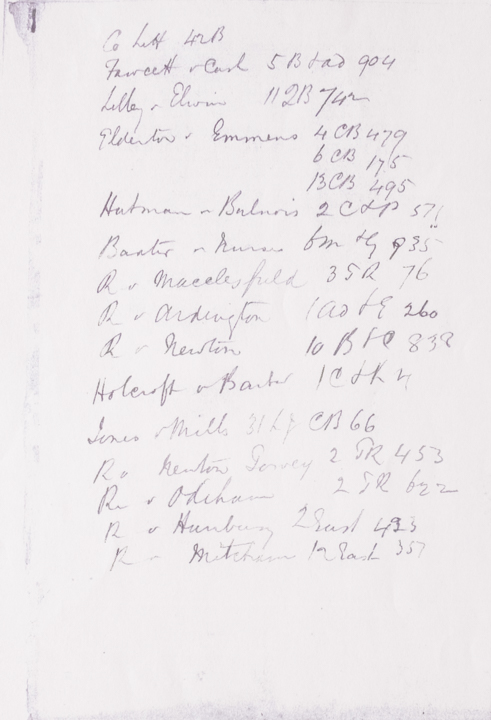 Co Litt 42B
Fawcett v Cash 5 B & ad 904
Lilley v Elwin 11 QB 742
Elderton v Emmens 4 CB 479
6 CB 175
13 CB 495
Hutman v Bulnois 2 C & P 511
Baxter v Nurse 6 M & G 935
R v Macclesfield 3 TR 76
R v Ardington 1 ad & E 260
R v Newton 10 B & C 838
Holcroft v Barber 1 C & K 4
Jones v Mills 31 LJ CB 66
R v Newton Toney 2 TR 453
R v Odiham 2 TR 622
R v Hanbury 2 East 423
R v Mitcham 12 East 351